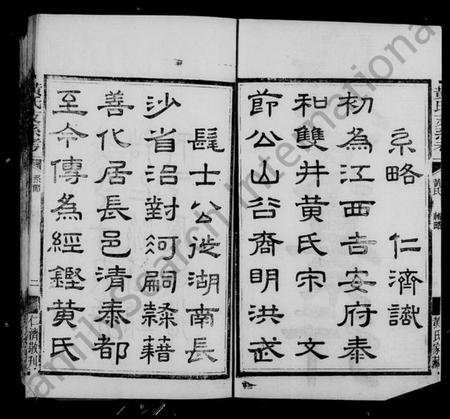 系略 仁濟識
初為江西吉安府泰
和雙井黃氏宋 文
節公山谷裔明洪武
髦士公徙湖南長
沙省治對河嗣隸藉
善化居長邑清泰都
至今傳為經鏗黃氏
黃氏家藏
黃氏支系考
二
仁濟敬刊
FamilySearch International